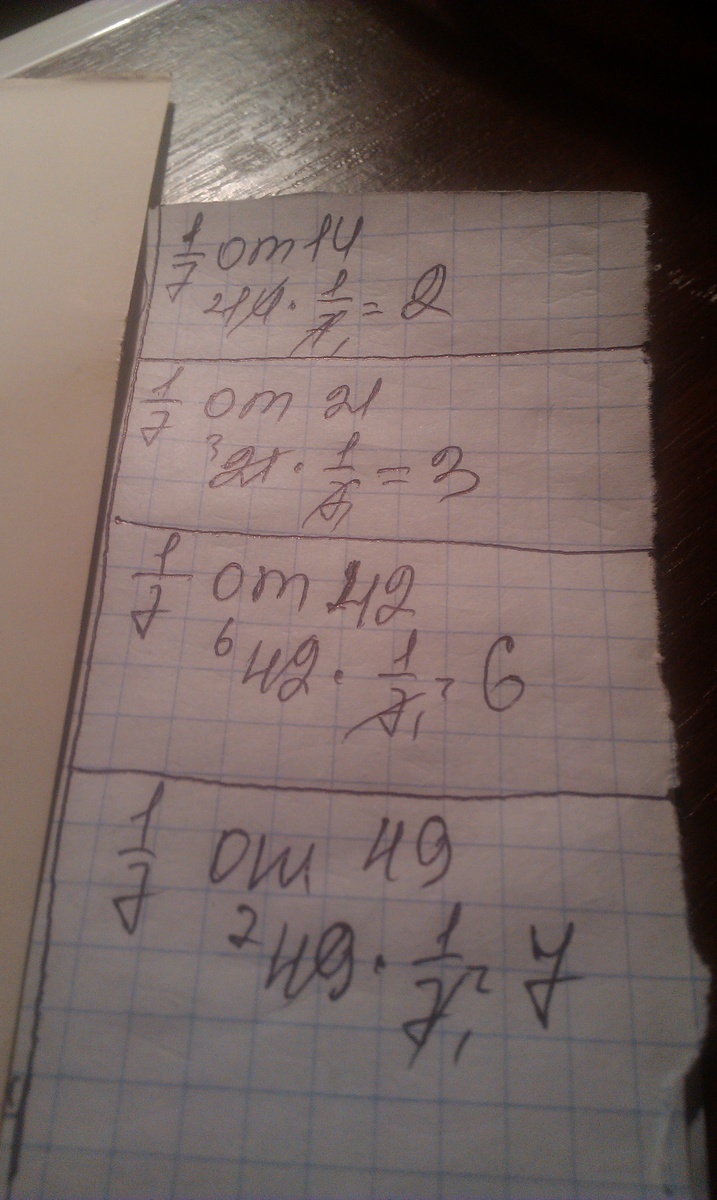 1/7 от 14
2 14 · 1/7 1 = 2
1/7 от 21
3 21 · 1/7 1 = 3
1/7 от 42
6 42 · 1/7 1 = 6
1/7 от 49
7 49 · 1/7 1 = 7